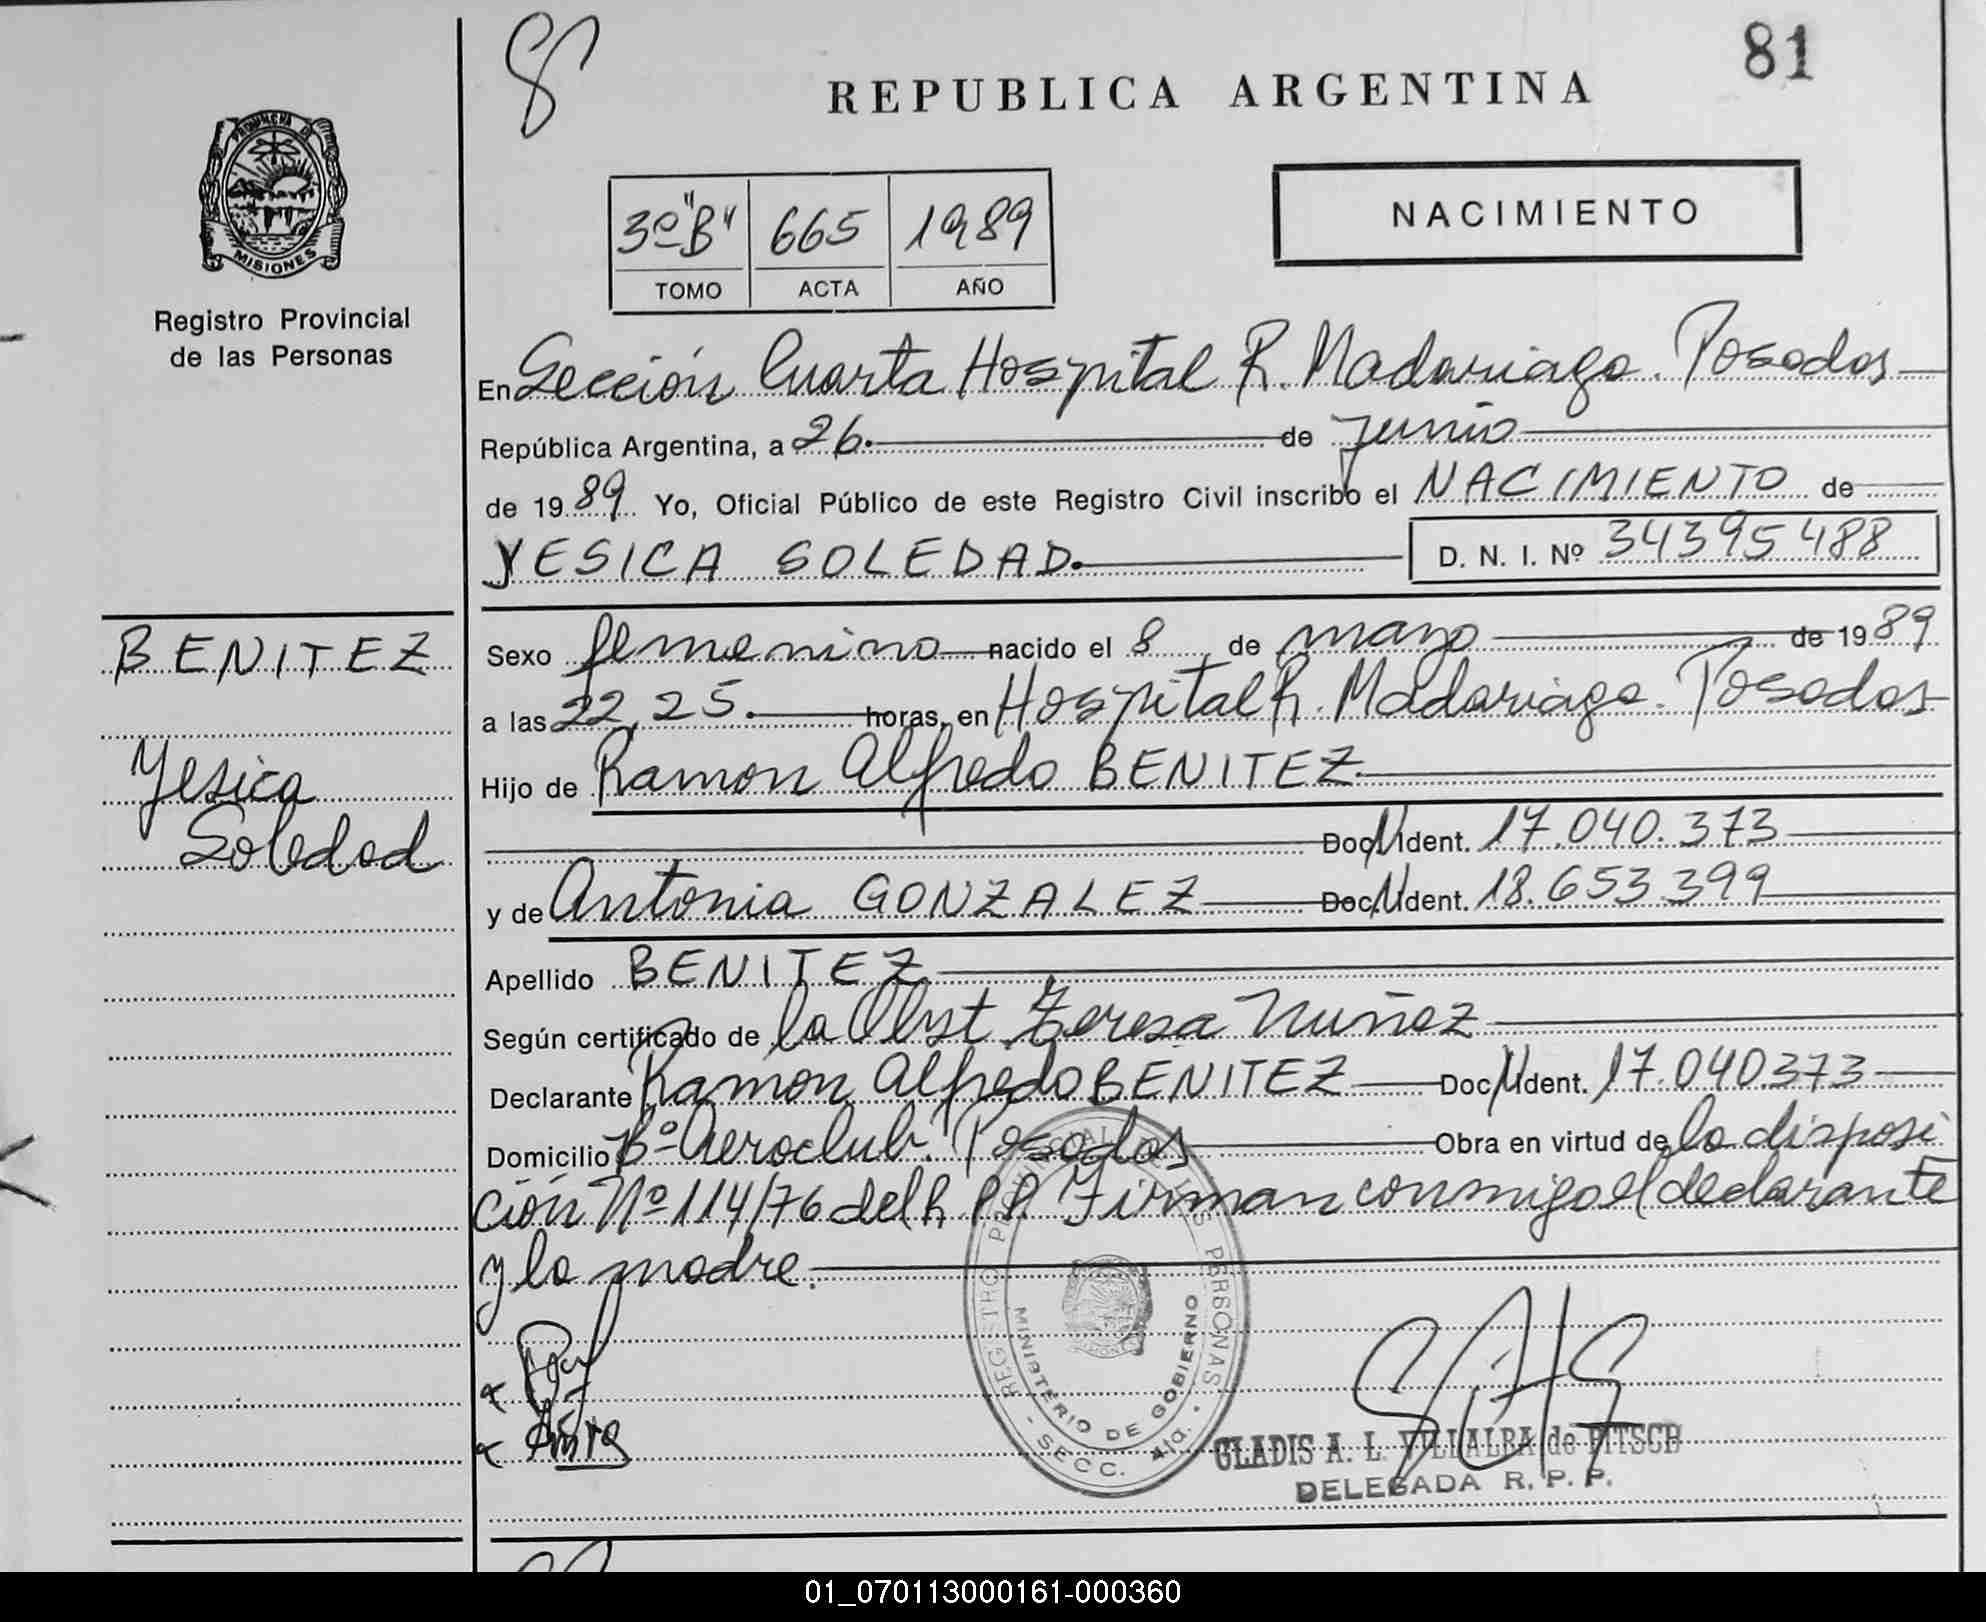 81
REPUBLICA ARGENTINA
PROVINCIA DE
MISIONES
Registro Provincial
de las Personas
3º "B" 665 1989
TOMO ACTA AÑO
NACIMIENTO
En Sección Cuarta Hospital R. Madariaga. Posadas
República Argentina, a 26. de junio
de 1989 Yo, Oficial Público de este Registro Civil inscribo el NACIMIENTO de
YESICA SOLEDAD. D. N. I. Nº 34395488
BENITEZ
Yesica
Soledad
Sexo femenino nacido el 8 de mayo de 1989
a las 22,25. horas, en Hospital R. Madariaga. Posadas
Hijo de Ramon Alfredo BENITEZ
Doc. N Ident. 17.040.373
y de Antonia GONZALEZ Doc. N Ident. 18.653.399
Apellido BENITEZ
Según certificado de la Obst. Teresa Nuñez
Declarante Ramon Alfredo BENITEZ Doc. N Ident. 17.040.373
Domicilio Bº Aeroclub. Posadas Obra en virtud de la disposi
ción Nº 114/76 del R.P.P. Firman conmigo el declarante
y la madre.
REGISTRO PROVINCIAL DE LAS PERSONAS
MINISTERIO DE GOBIERNO
- SECC. 4ta. -
GLADIS A. L. VILLALBA de PITSCH
DELEGADA R. P. P.
01_070113000161-000360